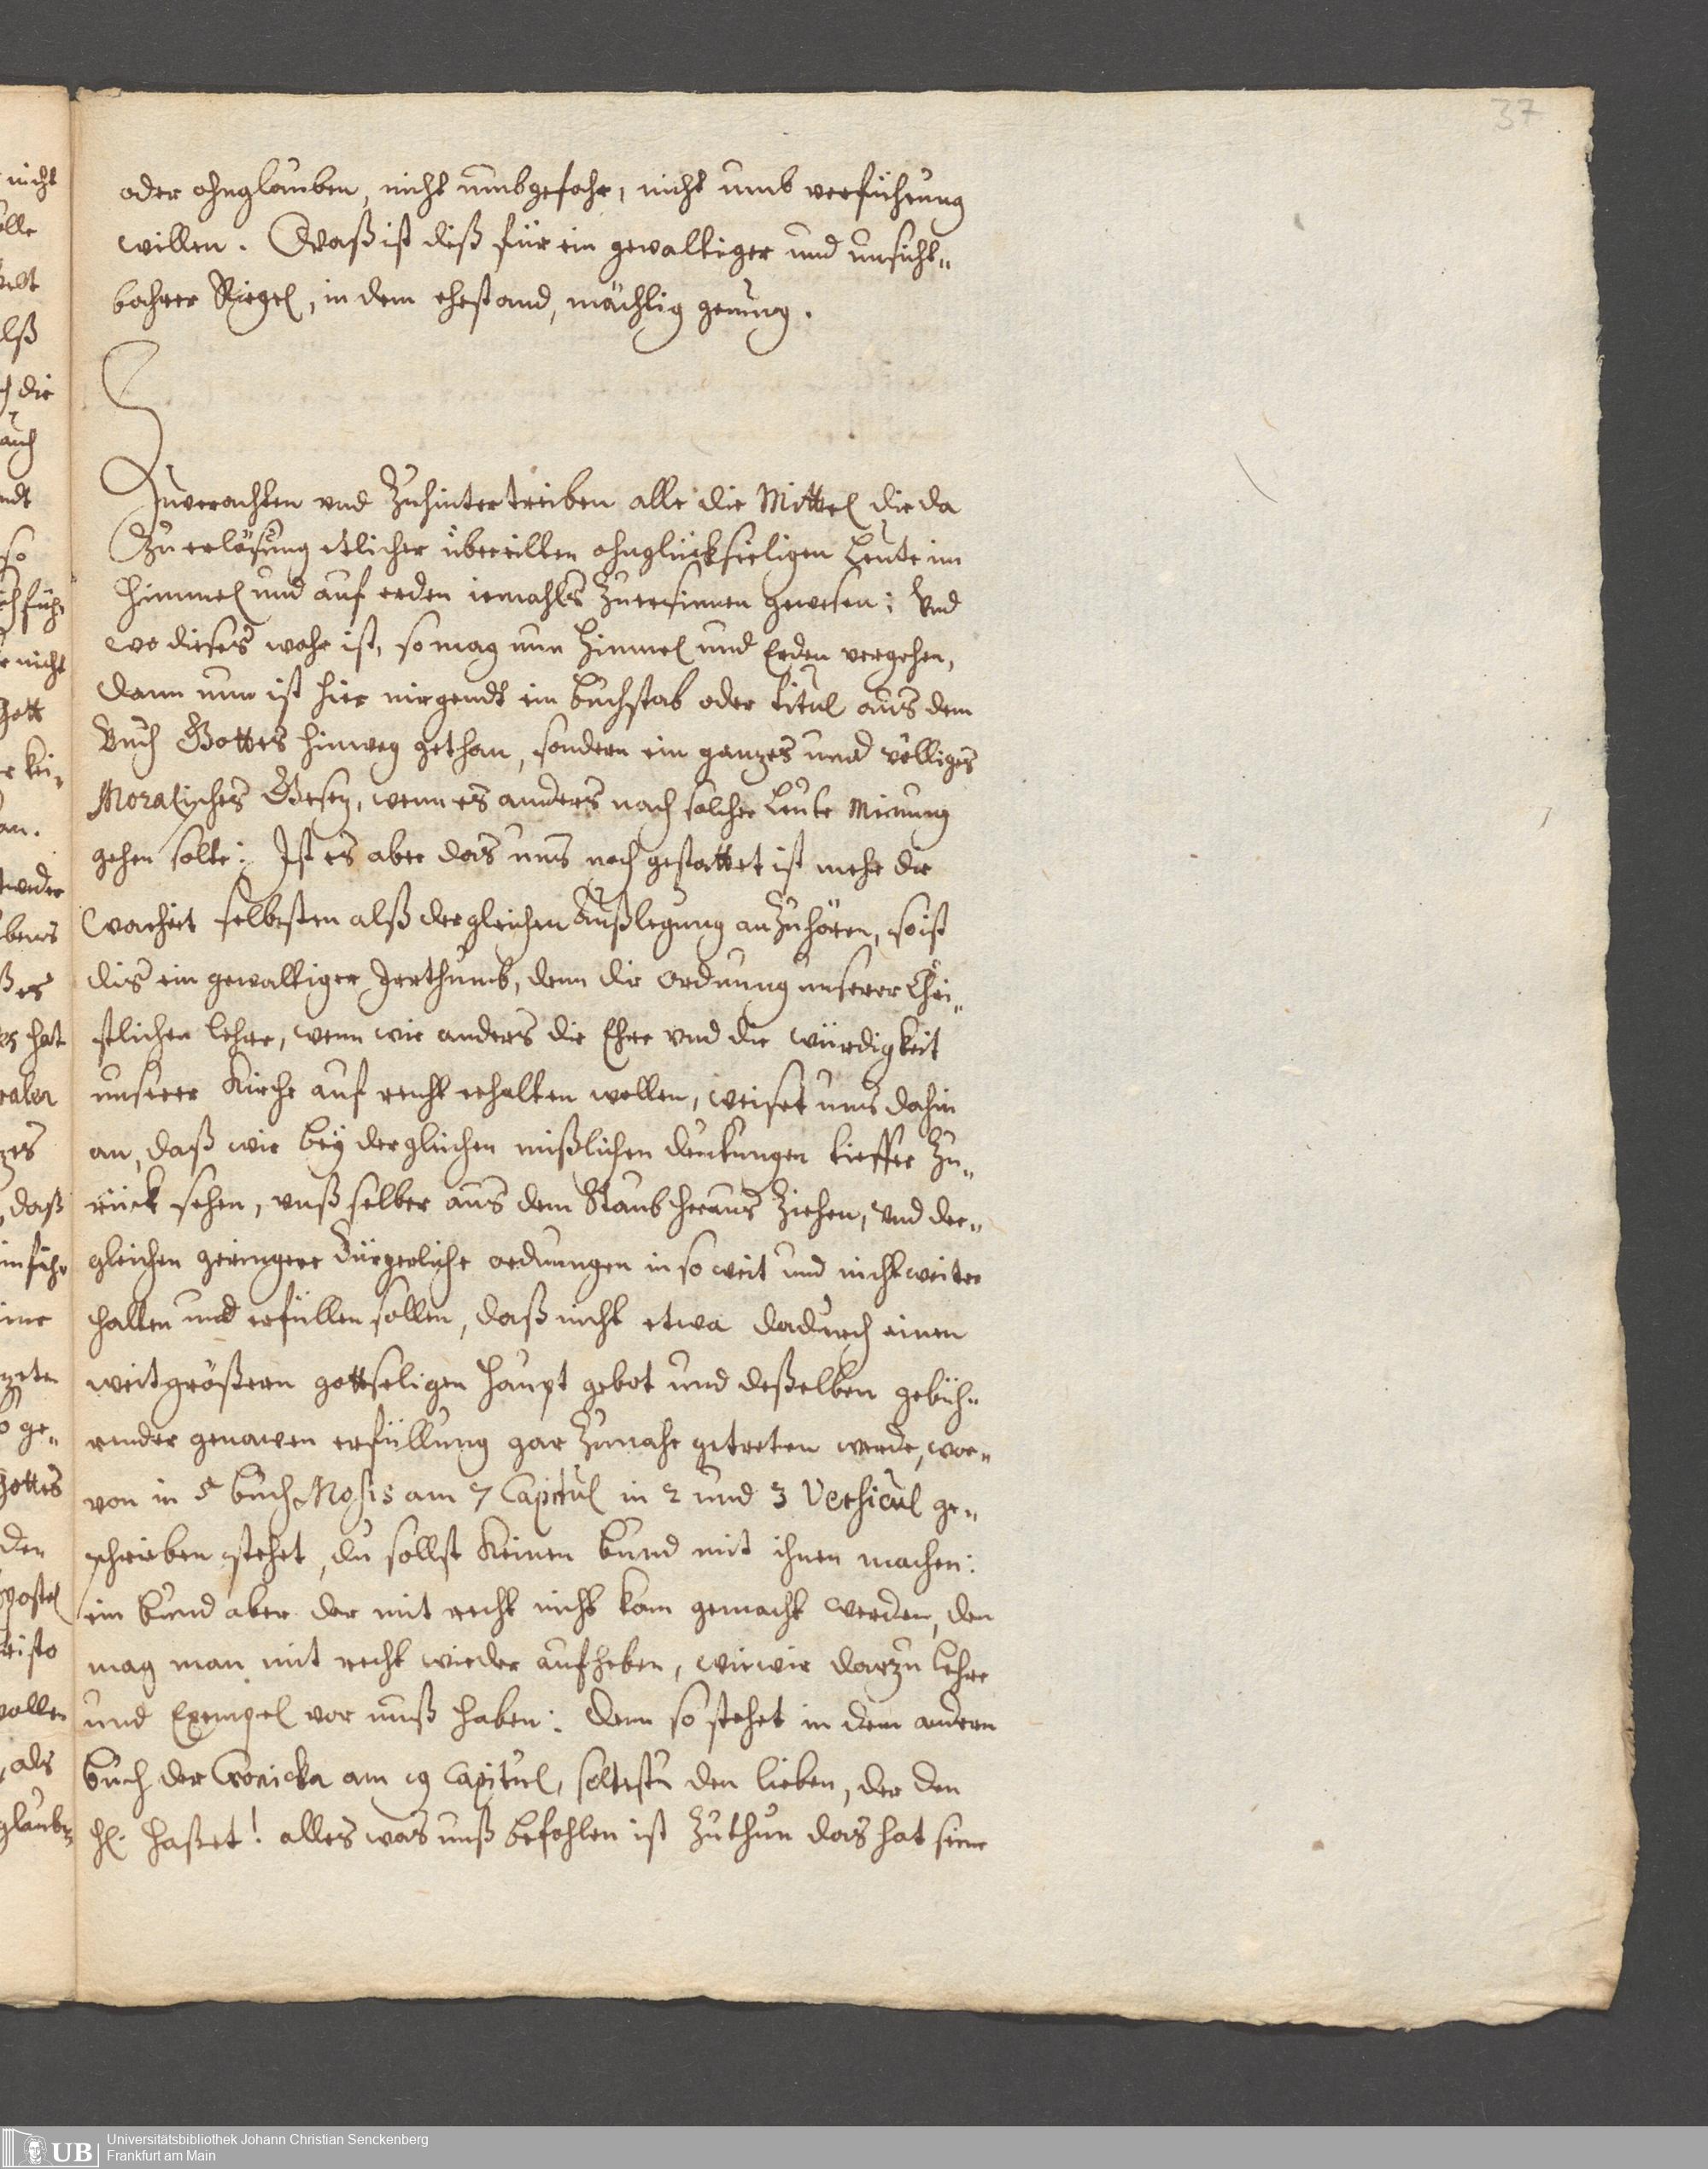 37
oder ohnglauben, nicht umbgefahr, nicht umb verführung
willen. Waß ist diß für ein gewaltiger und unsicht„
bahrer Riegel, in dem ehestand, mächtig genung.
Zuverachten und Zuhintertreiben alle die Mittel die da
Zu erlösung etlicher übereilten ohnglückseeligen Leute im
Himmel und auf erden iemahls Zuersinnen gewesen: Und
wo dieses wahr ist, so mag nun Himmel und Erden vergehen,
dann nun ist hier nirgendt ein buchstab oder titul aus dem
Buch Gottes hinweg gethan, sondern ein ganzes und völliges
Moralisches Gesetz, wenn es anders nach solcher Leute Meinung
gehen solte: Ist es aber das uns noch gestattet ist mehr die
Warheit selbesten alß dergleichen Außlegung anzuhören, so ist
dis ein gewaltiger Irrthumb, denn die ordnung unserer Chri„
stlichen lehre, wenn wir anders die Ehre und die würdigkeit
unserer Kirche auf recht erhalten wollen, weiset uns dahin
an, daß wir bey dergleichen mißlichen deutungen tieffer Zu„
rück sehen, unß selber aus dem Staub heraus Ziehen, und der„
gleichen geringere bürgerliche ordnungen in so weit und nicht weiter
halten und erfüllen sollen, daß nicht etwa dadurch einem
weit größern gottseligen haupt gebot und deßelben gebüh„
render genawen erfüllung gar Zunahe getreten werde, wor„
von in 5 buch Mosis am 7 Capitul in 2 und 3 Versicul ge„
schrieben stehet, du sollst keinen bund mit ihnen machen:
ein bund aber der mit recht nicht kan gemacht werden, den
mag man mit recht wieder aufheben, wie wir darzu lehre
und Exempel vor unß haben: denn so stehet in dem andern
buch der Cronicka am 19 Capitul, soltestu den lieben, der den
H. haßet! alles was unß befohlen ist Zuthun das hat seine
nicht
die
auch
so
nicht
Gott
kei„
an.
es
hat
daß
ge„
Gottes
den
als
UB Universitätsbibliothek Johann Christian Senckenberg
Frankfurt am Main